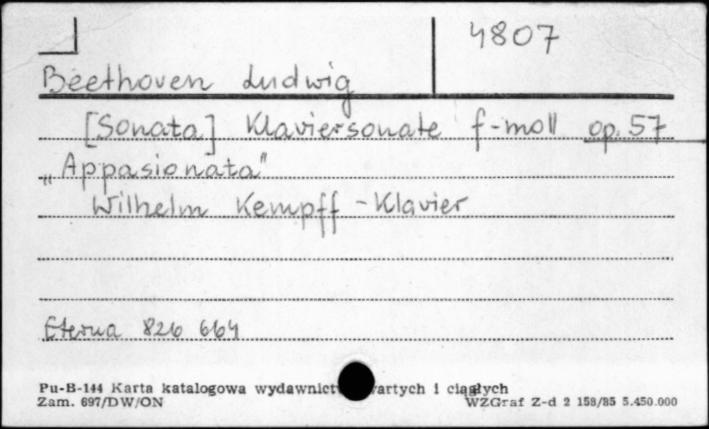 4807
Beethoven Ludwig
[Sonata] Klaviersonate f-moll op. 57
„Appasionata"
Wilhelm Kempff - Klavier
Eterna 826 664
Pu-B-144 Karta katalogowa wydawnict wartych i ciągłych
Zam. 697/DW/ON WZGraf Z-d 2 158/85 5.450.000